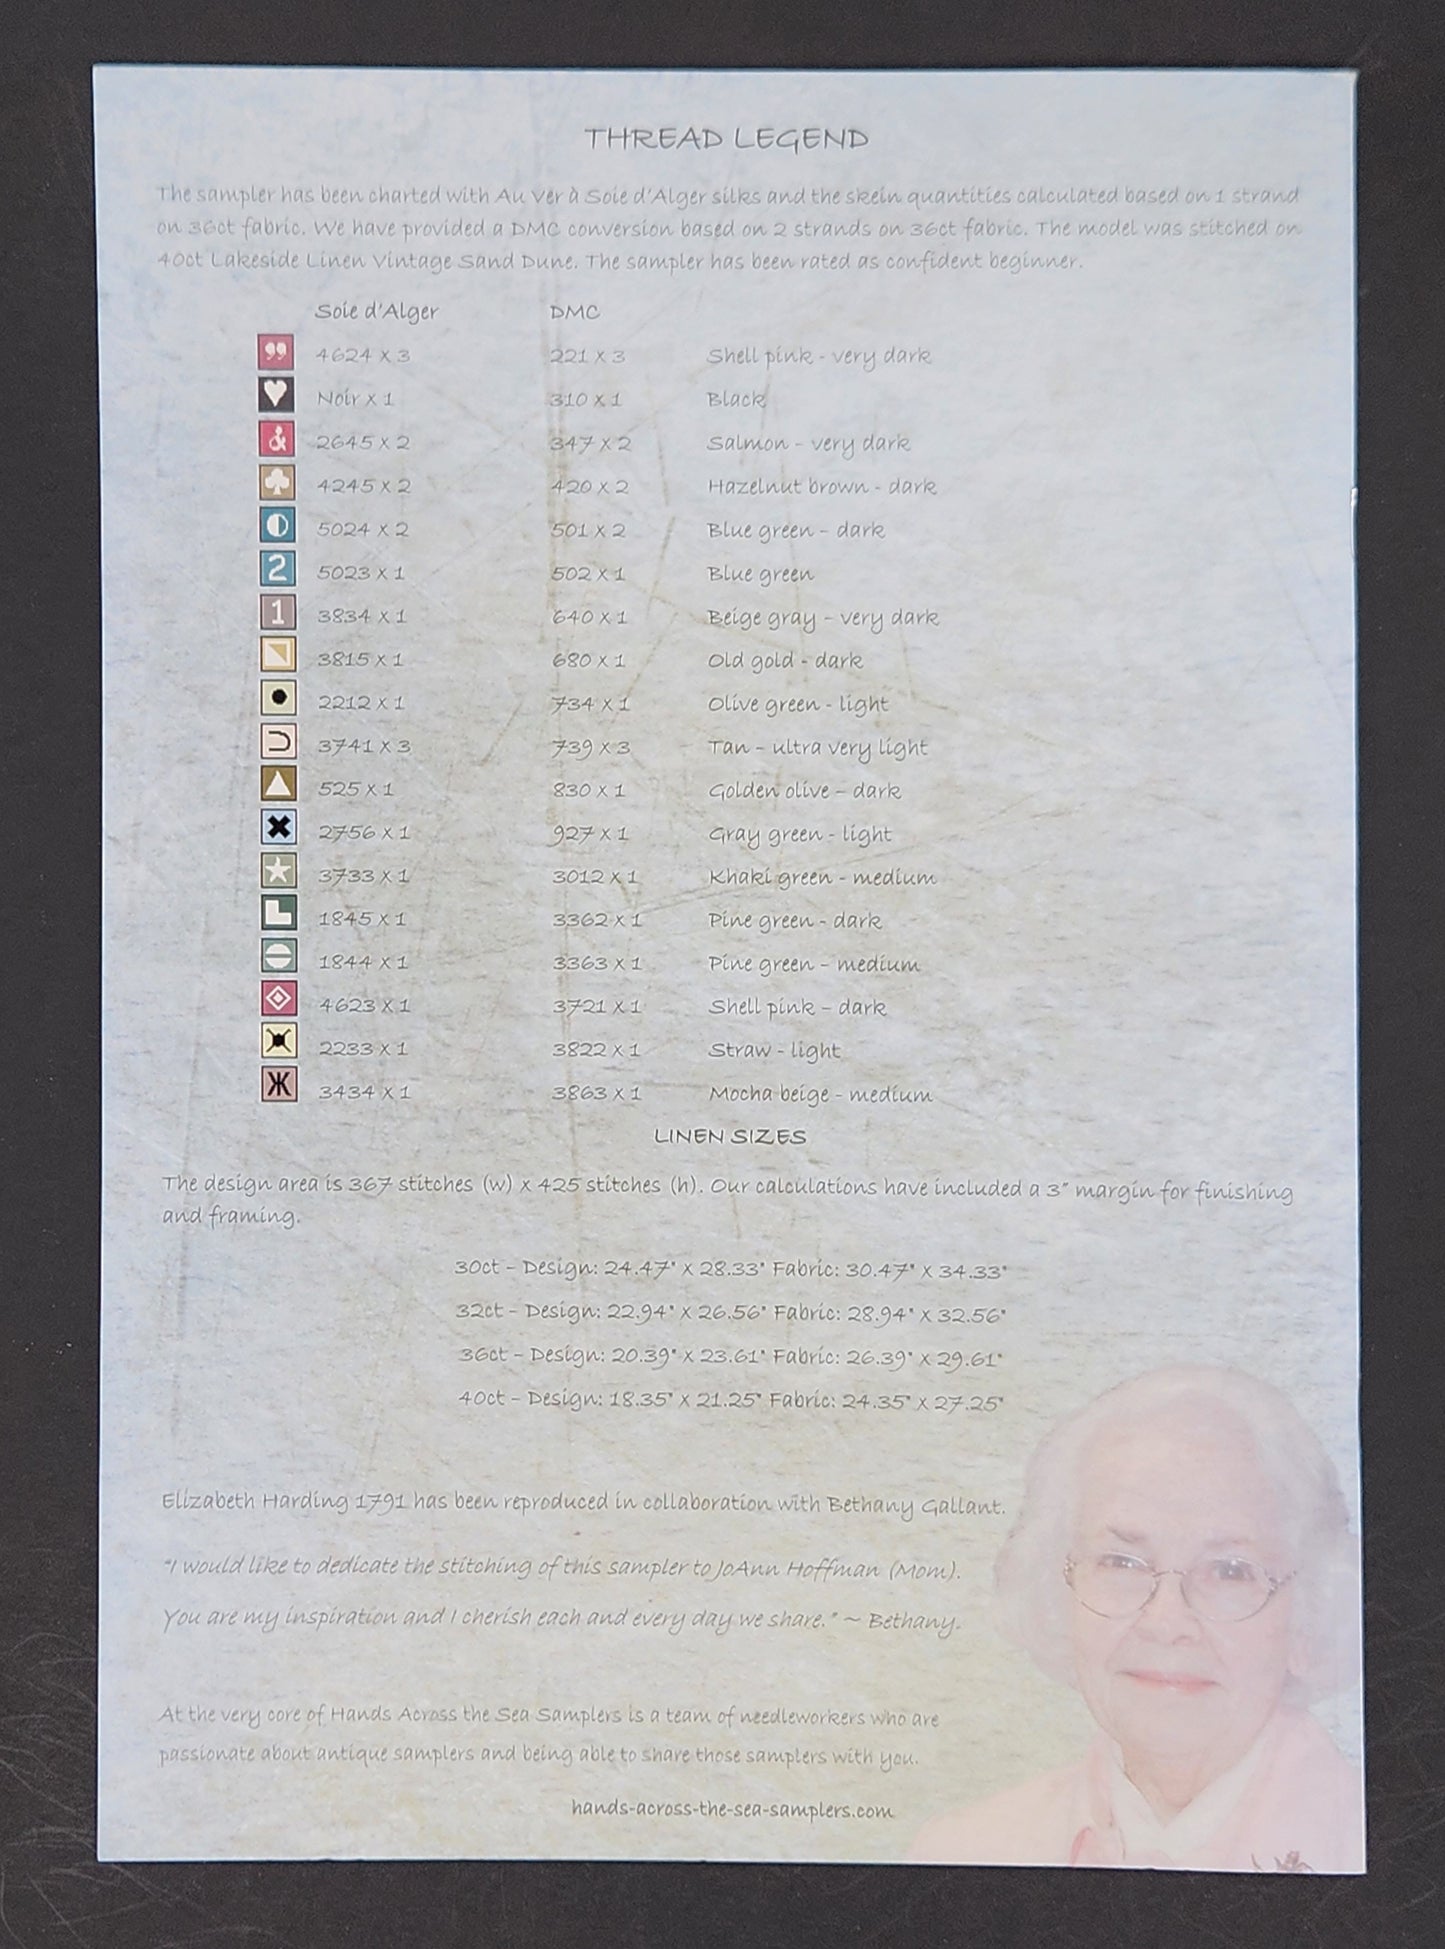 THREAD LEGEND
The sampler has been charted with Au Ver à Soie d'Alger silks and the skein quantities calculated based on 1 strand
on 36ct fabric. We have provided a DMC conversion based on 2 strands on 36ct fabric. The model was stitched on
40ct Lakeside Linen Vintage Sand Dune. The sampler has been rated as confident beginner.
Soie d'Alger DMC
4624 x 3 221 x 3 Shell pink - very dark
Noir x 1 310 x 1 Black
2645 x 2 347 x 2 Salmon - very dark
4245 x 2 420 x 2 Hazelnut brown - dark
5024 x 2 501 x 2 Blue green - dark
2 5023 x 1 502 x 1 Blue green
1 3834 x 1 640 x 1 Beige gray - very dark
3815 x 1 680 x 1 Old gold - dark
2212 x 1 734 x 1 Olive green - light
3741 x 3 739 x 3 Tan - ultra very light
525 x 1 830 x 1 Golden olive - dark
2756 x 1 927 x 1 Gray green - light
3733 x 1 3012 x 1 Khaki green - medium
1845 x 1 3362 x 1 Pine green - dark
1844 x 1 3363 x 1 Pine green - medium
4623 x 1 3721 x 1 Shell pink - dark
2233 x 1 3822 x 1 Straw - light
Ж 3434 x 1 3863 x 1 Mocha beige - medium
LINEN SIZES
The design area is 367 stitches (w) x 425 stitches (h). Our calculations have included a 3" margin for finishing
and framing.
30ct - Design: 24.47" x 28.33" Fabric: 30.47" x 34.33"
32ct - Design: 22.94" x 26.56" Fabric: 28.94" x 32.56"
36ct - Design: 20.39" x 23.61" Fabric: 26.39" x 29.61"
40ct - Design: 18.35" x 21.25" Fabric: 24.35" x 27.25"
Elizabeth Harding 1791 has been reproduced in collaboration with Bethany Gallant.
"I would like to dedicate the stitching of this sampler to JoAnn Hoffman (Mom).
You are my inspiration and I cherish each and every day we share." ~ Bethany.
At the very core of Hands Across the Sea Samplers is a team of needleworkers who are
passionate about antique samplers and being able to share those samplers with you.
hands-across-the-sea-samplers.com